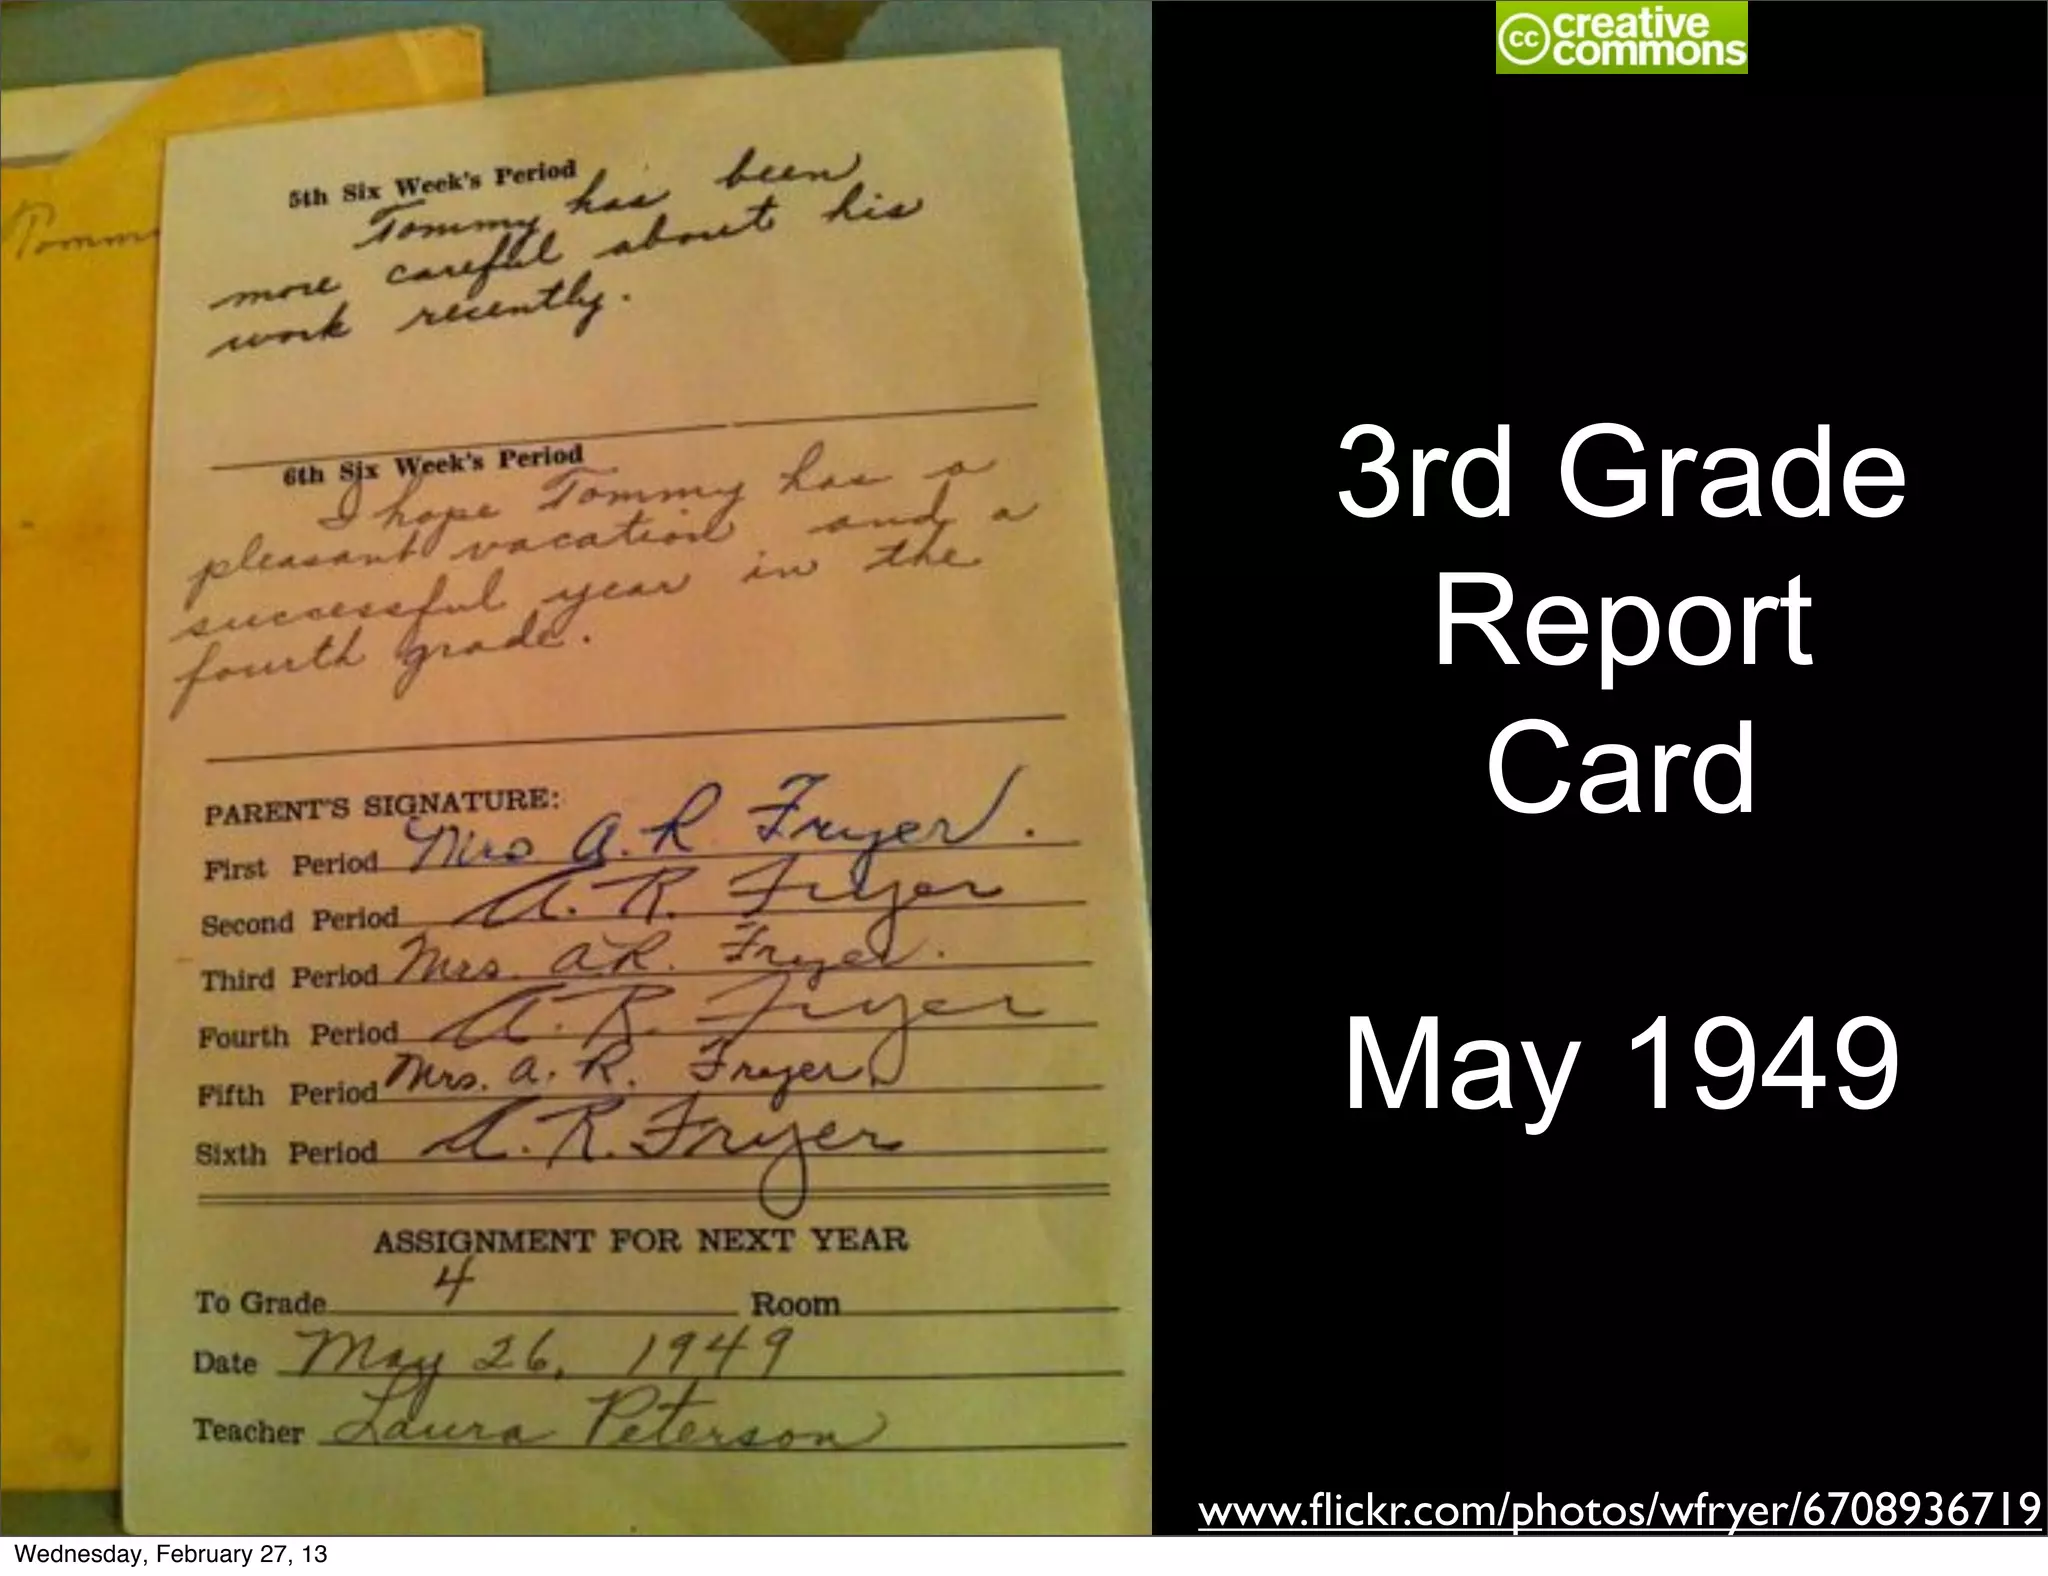 Tomm
5th Six Week's Period
Tommy has been
more careful about his
work recently.
6th Six Week's Period
I hope Tommy has a
pleasant vacation and a
successful year in the
fourth grade.
PARENT'S SIGNATURE:
First Period Mrs A. R. Fryer.
Second Period A. R. Fryer
Third Period Mrs. A R. Fryer.
Fourth Period A. R. Fryer
Fifth Period Mrs. A. R. Fryer
Sixth Period A. R. Fryer
ASSIGNMENT FOR NEXT YEAR
To Grade 4 Room
Date May 26, 1949
Teacher Laura Peterson
cc creative
commons
3rd Grade
Report
Card
May 1949
www.flickr.com/photos/wfryer/6708936719
Wednesday, February 27, 13